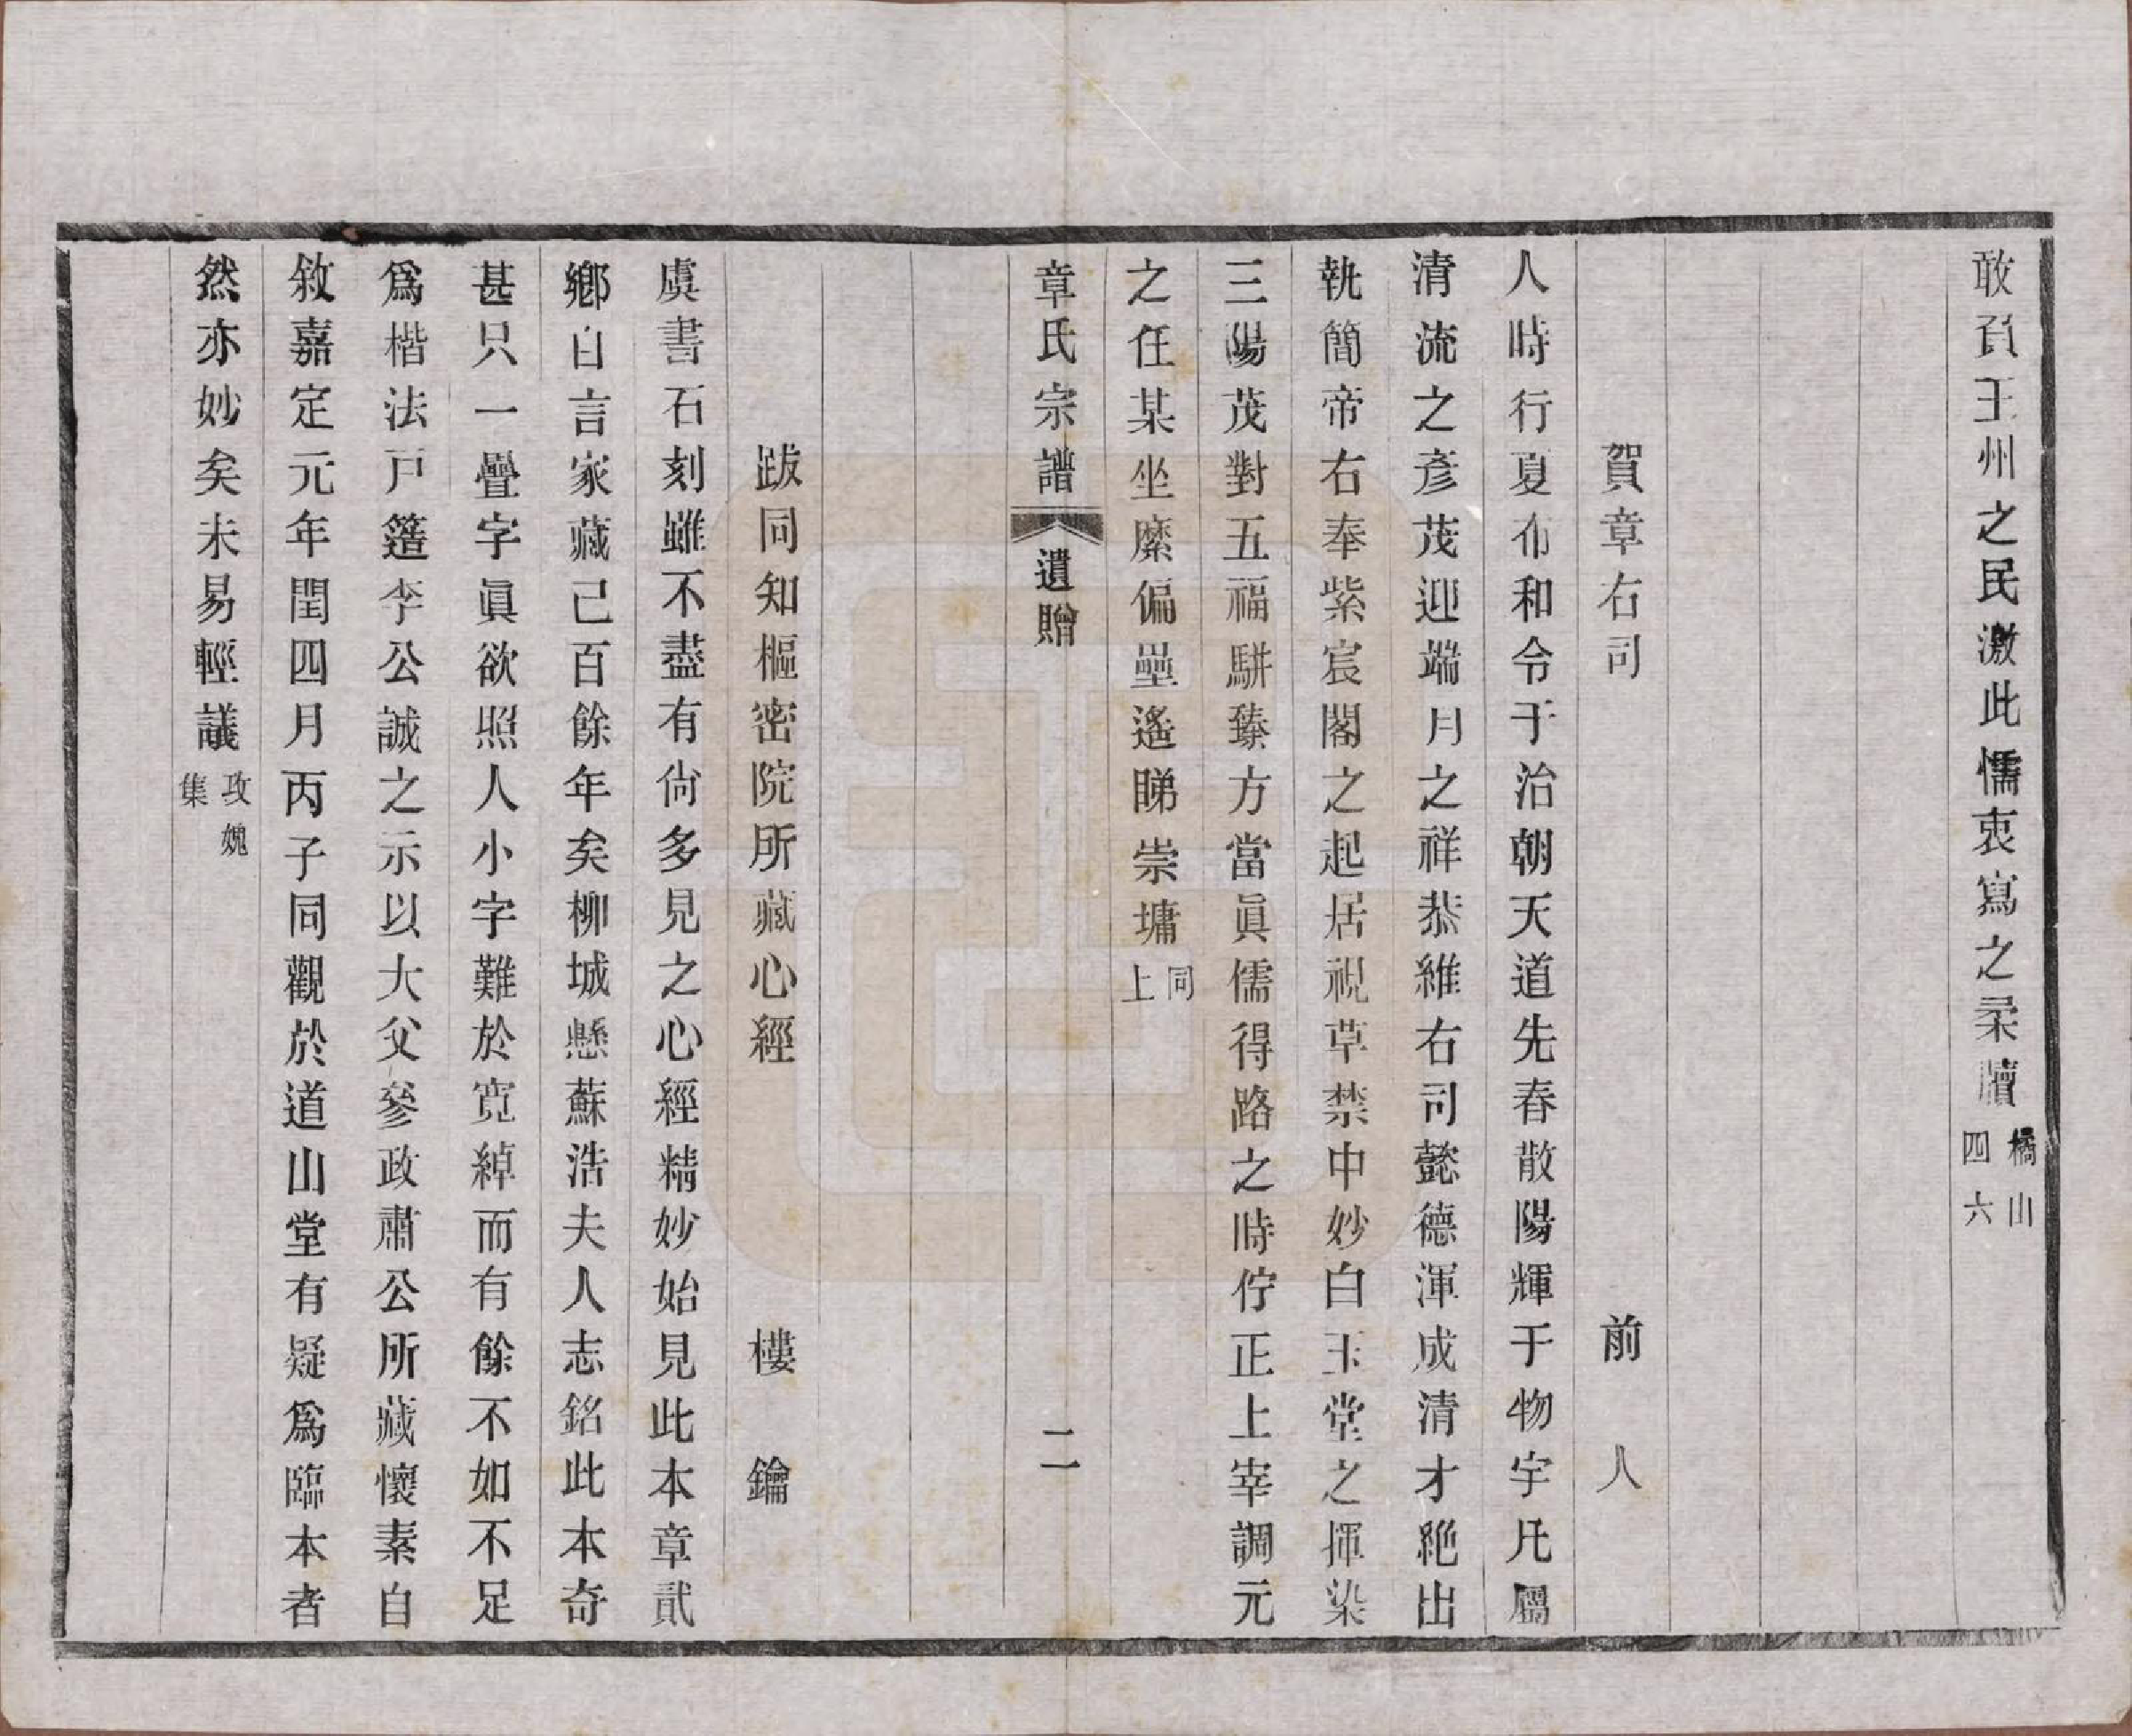 敢負王州之民激此懦衷寫之柔牘橘山四六
賀章右司　前人
人時行夏布和令于治朝天道先春散陽輝于物宇凡屬
清流之彥茂迎端月之祥恭維右司懿德渾成清才絶出
執簡帝右奉紫宸閣之起居視草禁中妙白玉堂之揮染
三陽茂對五福駢臻方當眞儒得路之時佇正上宰調元
之任某坐縻偏壘遙睇崇墉同上
章氏宗譜　遺贈　二
跋同知樞密院所藏心經　樓鑰
虞書石刻雖不盡有尙多見之心經精妙始見此本章貳
鄉自言家藏己百餘年矣柳城懸蘇浩夫人志銘此本奇
甚只一疊字眞欲照人小字難於寬綽而有餘不如不足
爲楷法戸簉李公誠之示以大父參政肅公所藏懷素自
敘嘉定元年閏四月丙子同觀於道山堂有疑爲臨本者
然亦妙矣未易輕議攻媿集